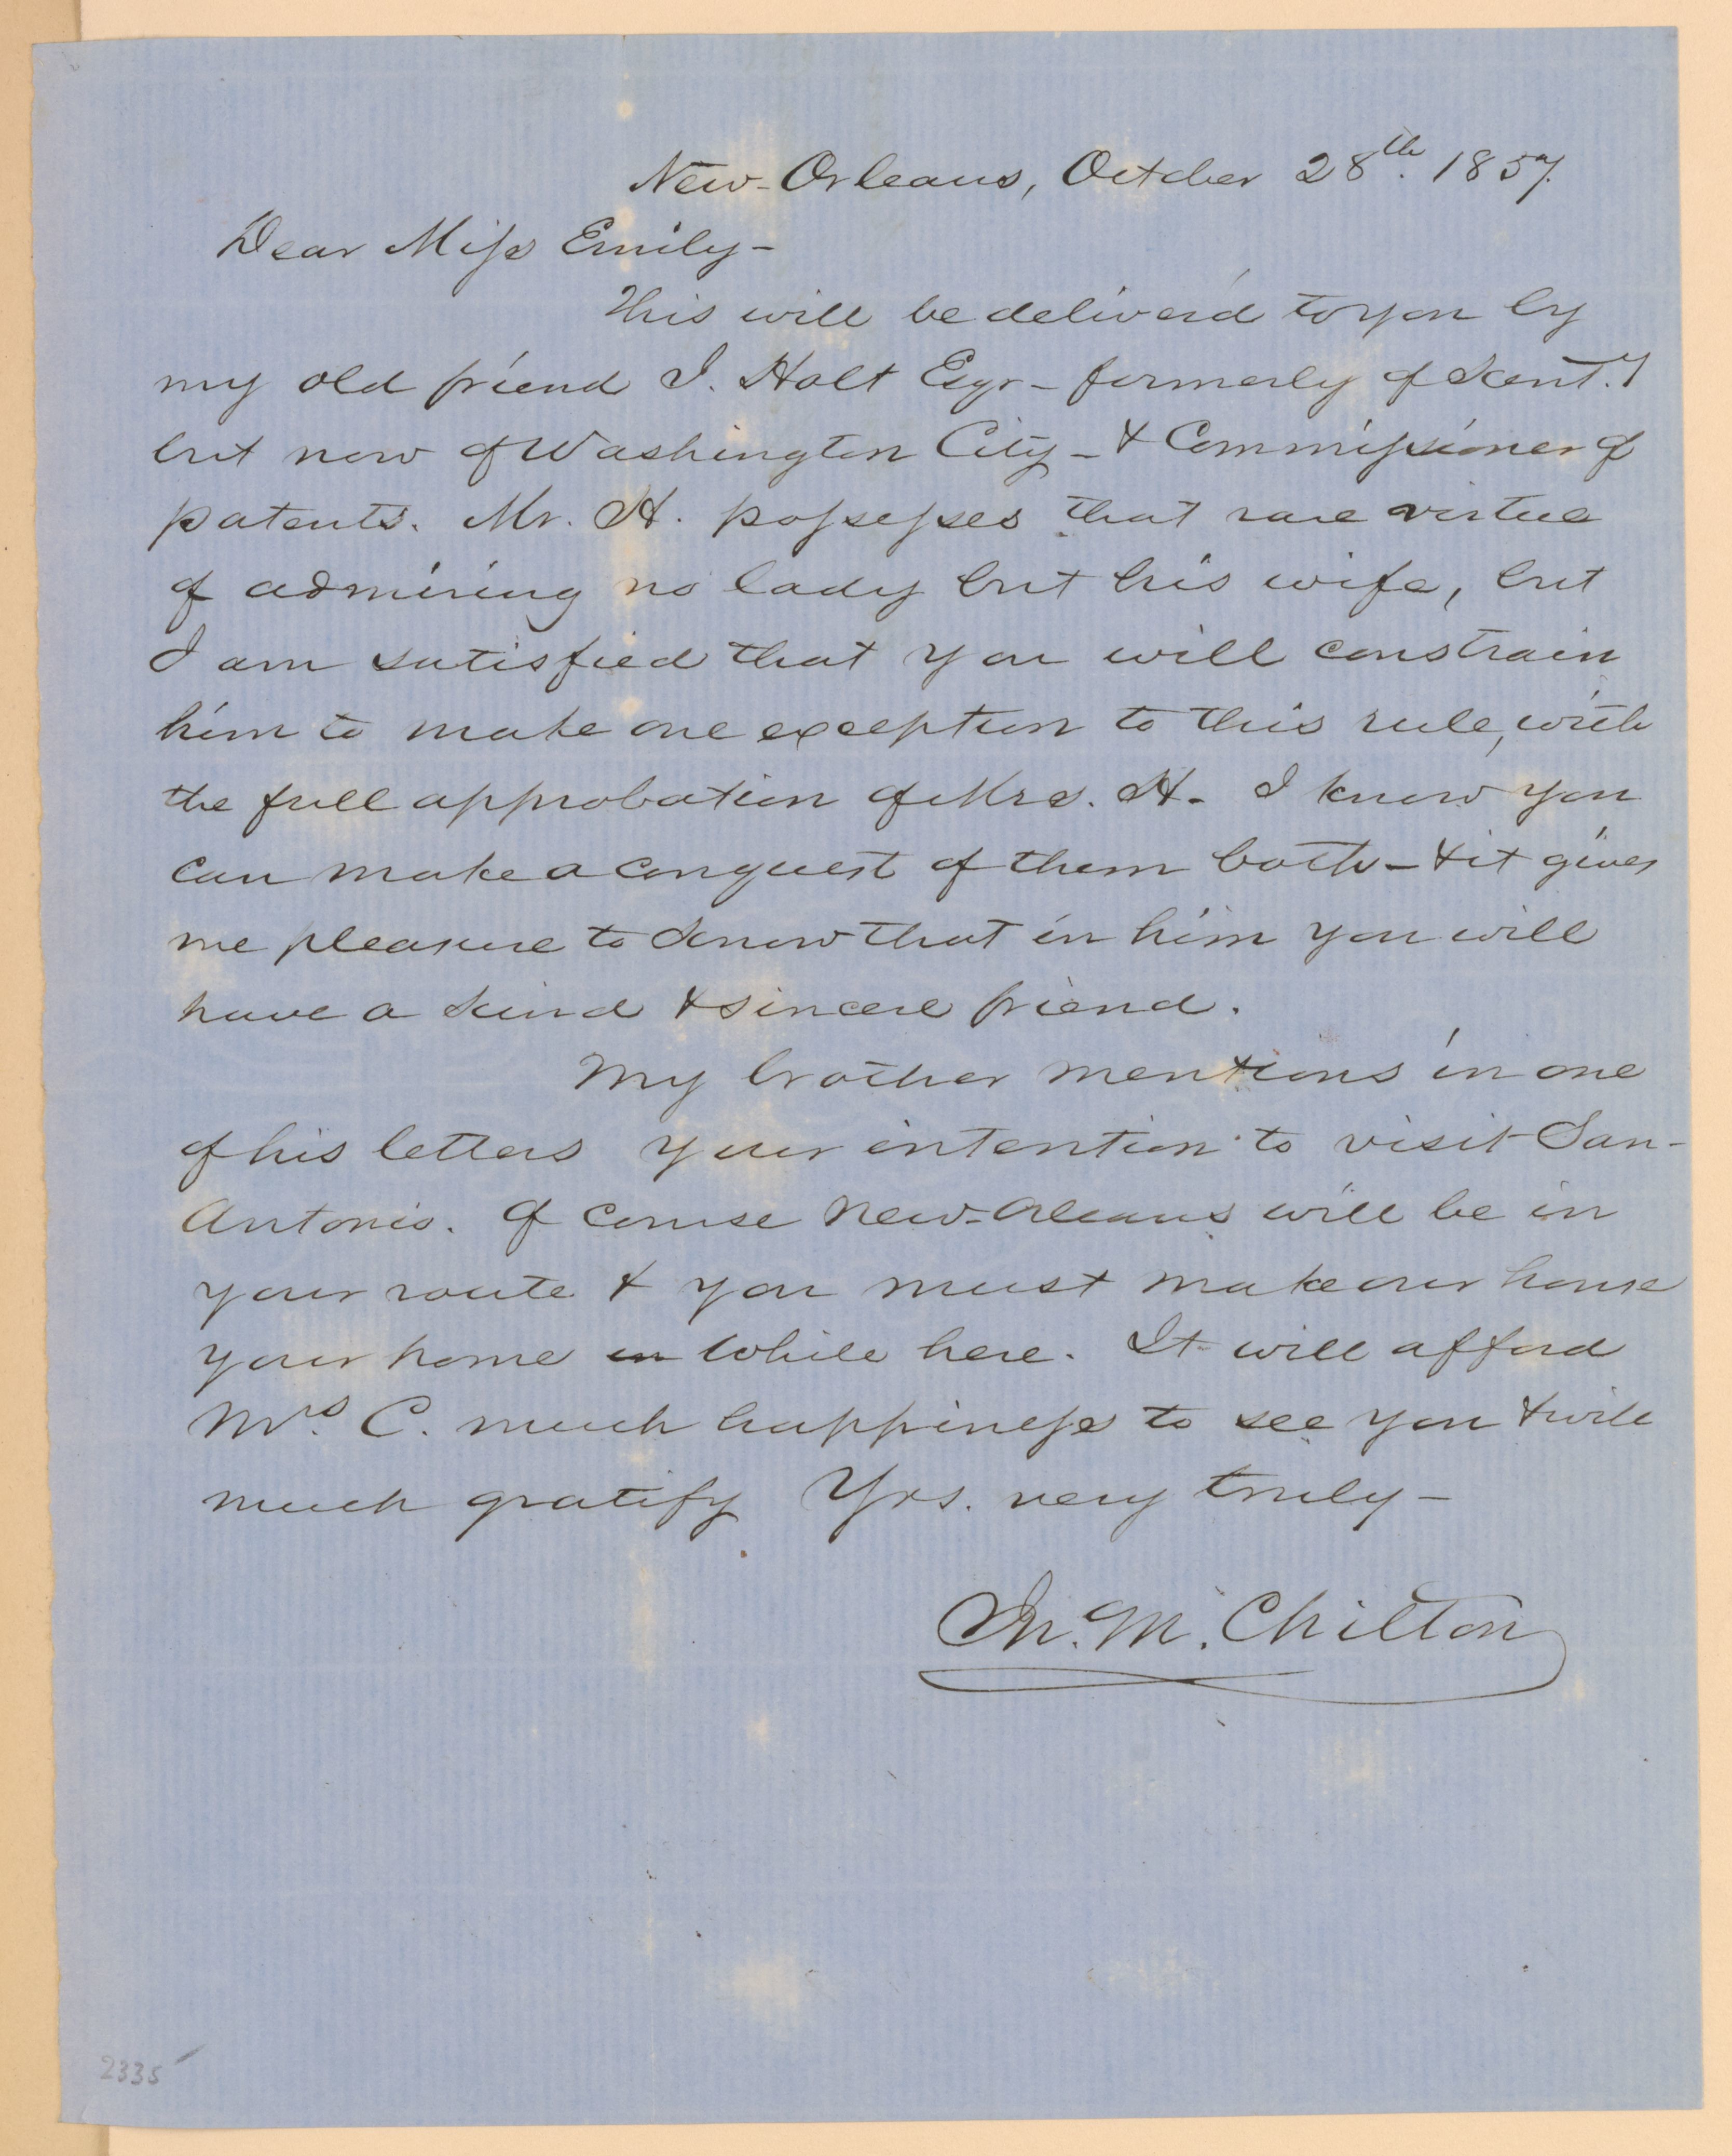 New-Orleans, October 28th. 1857.
Dear Miss Emily-
This will be deliver'd to you by
my old friend J. Holt Esqr- formerly of Kent.y
but now of Washington City- & Commissioner of
patents. Mr. H. possesses that rare virtue
of admiring no lady but his wife, but
I am satisfied that you will constrain
him to make one exception to this rule, with
the full approbation of Mrs. H- I know you
can make a conquest of them both- & it gives
me pleasure to know that in him you will
have a kind & sincere friend.
My brother mentions in one
of his letters your intention to visit San-
Antonio. Of course New-Orleans will be in
your route & you must make our house
your home in while here. It will afford
Mrs. C. much happiness to see you & will
much gratify Yrs. very truly-
Jn. M. Chilton
2335